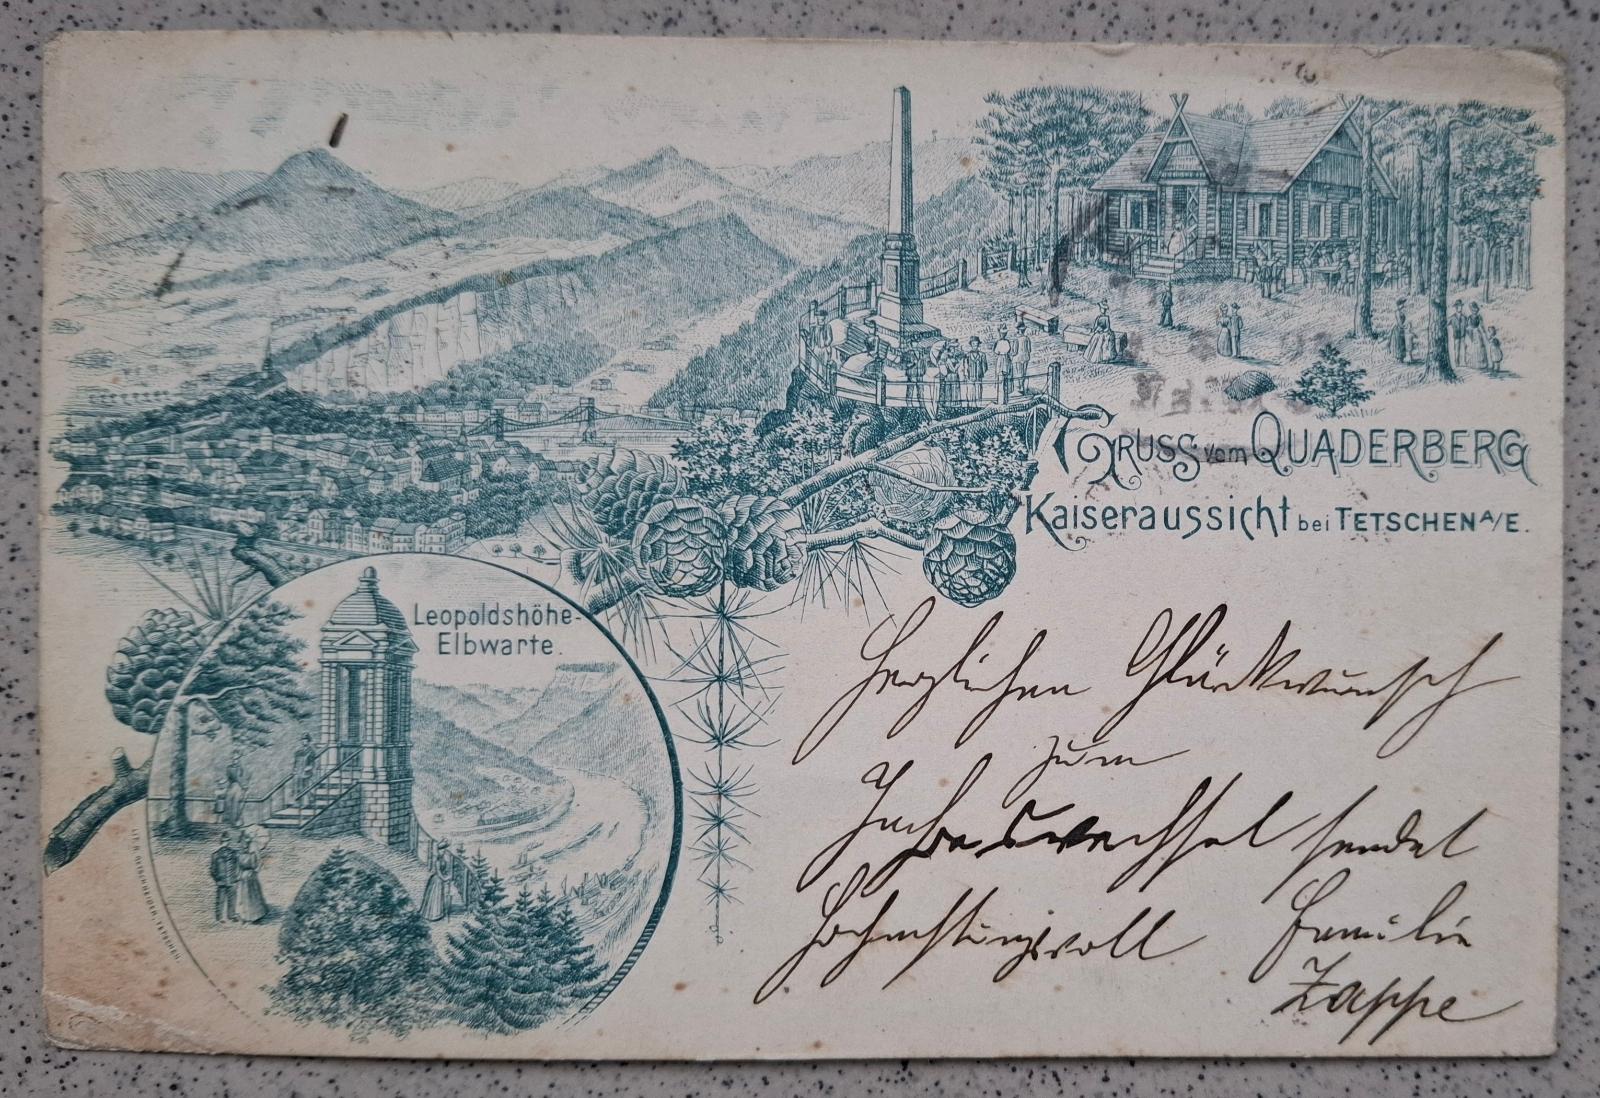 GRUSS vom QUADERBERG
Kaiseraussicht bei TETSCHEN A/E.
Leopoldshöhe-
Elbwarte.
Herzlichen Glückwunsch
zum
Jahreswechsel sendet
Hochachtungsvoll Familie
Zappe